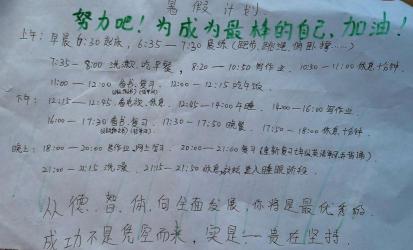 暑假计划
努力吧！为成为最棒的自己，加油！
上午：早晨6:30起床，6:35-7:30晨练（跑步、跳绳、俯卧撑……）
7:35-8:00洗漱、吃早餐，8:20-10:50写作业，10:50-11:00休息十分钟
11:00-12:00看书、复习，12:00-12:15吃午饭
下午：12:15-12:45看电视、休息，12:45-14:00午睡，14:00-16:00写作业
16:00-17:30看书、复习，17:30-17:50晚餐，17:50-18:00休息十分钟
晚上：18:00-20:00写作业、网上学习，20:00-21:00复习
21:00-21:15洗澡，21:15-21:50休息，进入睡眠阶段
从德、智、体，向全面发展，你将是最优秀的
成功不是凭空而来，实是——贵在坚持